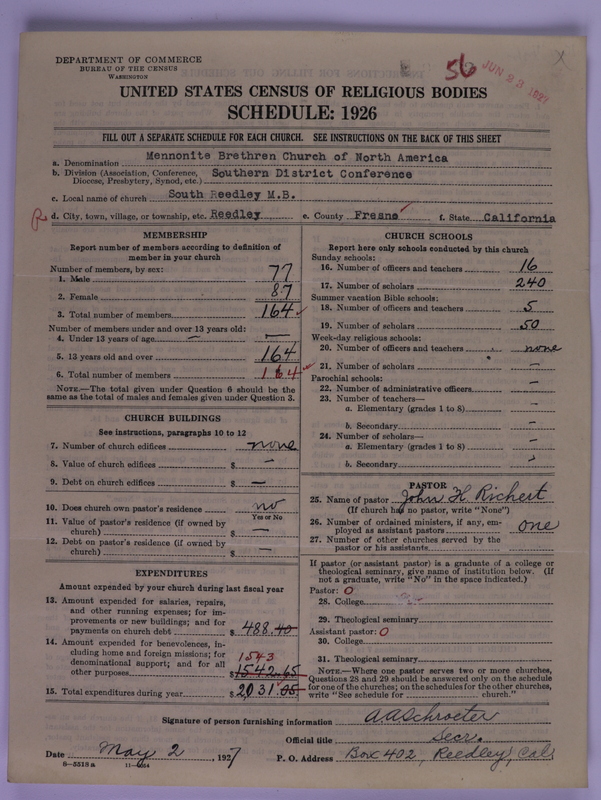 DEPARTMENT OF COMMERCE
BUREAU OF THE CENSUS
WASHINGTON
56
JUN 23 1927
UNITED STATES CENSUS OF RELIGIOUS BODIES
SCHEDULE: 1926
FILL OUT A SEPARATE SCHEDULE FOR EACH CHURCH. SEE INSTRUCTIONS ON THE BACK OF THIS SHEET
a. Denomination Mennonite Brethren Church of North America
b. Division (Association, Conference, Diocese, Presbytery, Synod, etc.) Southern District Conference
c. Local name of church South Reedley M.B.
d. City, town, village, or township, etc. Reedley e. County Fresno f. State California
MEMBERSHIP
Report number of members according to definition of
member in your church
Number of members, by sex:
1. Male 77
2. Female 87
3. Total number of members 164
Number of members under and over 13 years old:
4. Under 13 years of age —
5. 13 years old and over 164
6. Total number of members 164
NOTE.—The total given under Question 6 should be the
same as the total of males and females given under Question 3.
CHURCH BUILDINGS
See instructions, paragraphs 10 to 12
7. Number of church edifices none
8. Value of church edifices $ —
9. Debt on church edifices $ —
10. Does church own pastor's residence no
Yes or No
11. Value of pastor's residence (if owned by
church) $ —
12. Debt on pastor's residence (if owned by
church) $ —
EXPENDITURES
Amount expended by church during last fiscal year
13. Amount expended for salaries, repairs,
and other running expenses; for im-
provements or new buildings; and for
payments on church debt $ 488.40
14. Amount expended for benevolences, in-
cluding home and foreign missions; for
denominational support; and for all 1543
other purposes $ 1542.65
15. Total expenditures during year $ 2031.05
CHURCH SCHOOLS
Report here only schools conducted by this church
Sunday schools:
16. Number of officers and teachers 16
17. Number of scholars 240
Summer vacation Bible schools:
18. Number of officers and teachers 5
19. Number of scholars 50
Week-day religious schools:
20. Number of officers and teachers none
21. Number of scholars —
Parochial schools:
22. Number of administrative officers —
23. Number of teachers—
a. Elementary (grades 1 to 8) —
b. Secondary —
24. Number of scholars—
a. Elementary (grades 1 to 8) —
b. Secondary —
PASTOR
25. Name of pastor John H Richert
(If church has no pastor, write "None")
26. Number of ordained ministers, if any, em-
ployed as assistant pastors one
27. Number of other churches served by the
pastor or his assistants
If pastor (or assistant pastor) is a graduate of a college or
theological seminary, give name of institution below. (If
not a graduate, write "No" in the space indicated.)
Pastor: O
28. College
29. Theological seminary
Assistant pastor: O
30. College
31. Theological seminary
NOTE.—Where one pastor serves two or more churches,
Questions 28 and 29 should be answered only on the schedule
for one of the churches; on the schedules for the other churches,
write "See schedule for church."
Signature of person furnishing information A A Schroeter
Official title Secr.
Date May 2, 1927 P. O. Address Box 402, Reedley, Cal.
8-5518a